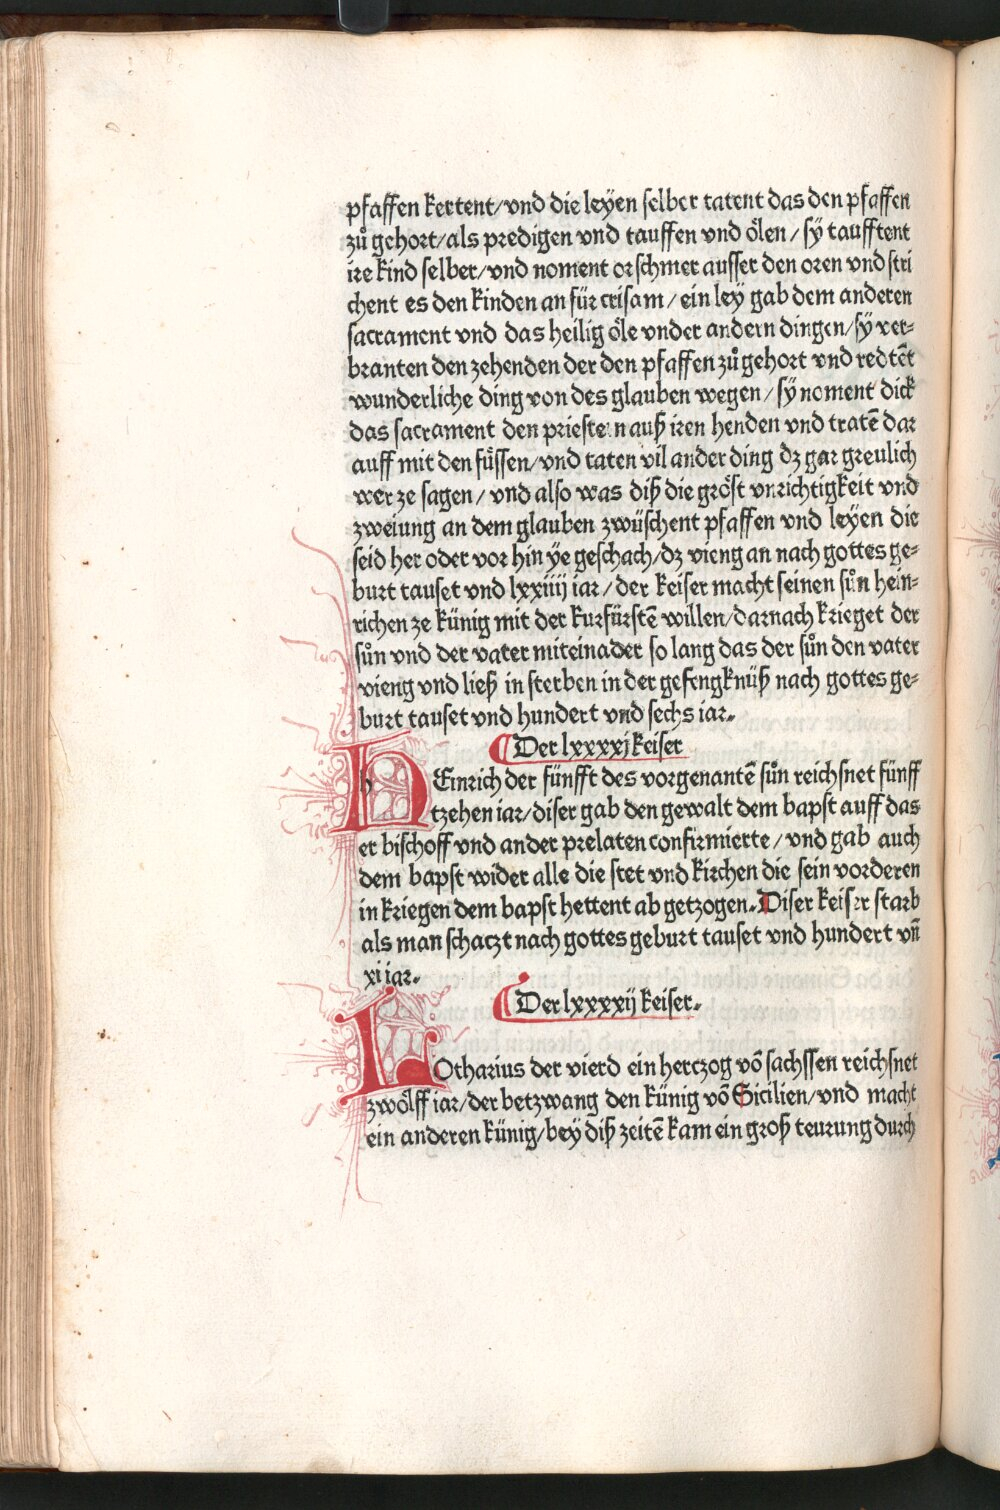 pfaffen kertent/vnd die leyen selber tatent das den pfaffen
zů gehort/als predigen vnd tauffen vnd ölen/sÿ taufftent
ire kind selber/vnd noment orschmer ausser den oren vnd stri
chent es den kinden an für crisam/ein leÿ gab dem anderen
sacrament vnd das heilig öle vnder andern dingen/sÿ ver⸗
branten den zehenden der den pfaffen zůgehort vnd redtēt
wunderliche ding von des glauben wegen/sÿ noment dick
das sacrament den priestern auß iren henden vnd tratē dar
auff mit den füssen/vnd taten vil ander ding dz gar greulich
wer ze sagen/vnd also was diß die gröst vnrichtigkeit vnd
zweiung an dem glauben zwüschent pfaffen vnd leÿen die
seid her oder vor hin ÿe geschach/dz vieng an nach gottes ge⸗
burt tauset vnd lxxiiij iar/der keiser macht seinen sůn hein⸗
richen ze künig mit der kurfürstē willen/darnach krieget der
sůn vnd der vater miteinader so lang das der sůn den vater
vieng vnd ließ in sterben in der gefengknüß nach gottes ge⸗
burt tauset vnd hundert vnd sechs iar.
¶ Der lxxxxj keiser
HEinrich der fünfft des vorgenantē sůn reichsnet fünff
tzehen iar/diser gab den gewalt dem bapst auff das
er bischoff vnd ander prelaten confirmierte/vnd gab auch
dem bapst wider alle die stet vnd kirchen die sein vorderen
in kriegen dem bapst hettent ab getzogen. Diser keiser starb
als man schaczt nach gottes geburt tauset vnd hundert vn̄
xi iar.
¶ Der lxxxxij keiser.
LOtharius der vierd ein herczog vō sachssen reichsnet
zwölff iar/der betzwang den künig vō Sicilien/vnd macht
ein anderen künig/beÿ diß zeitē kam ein groß teurung durch